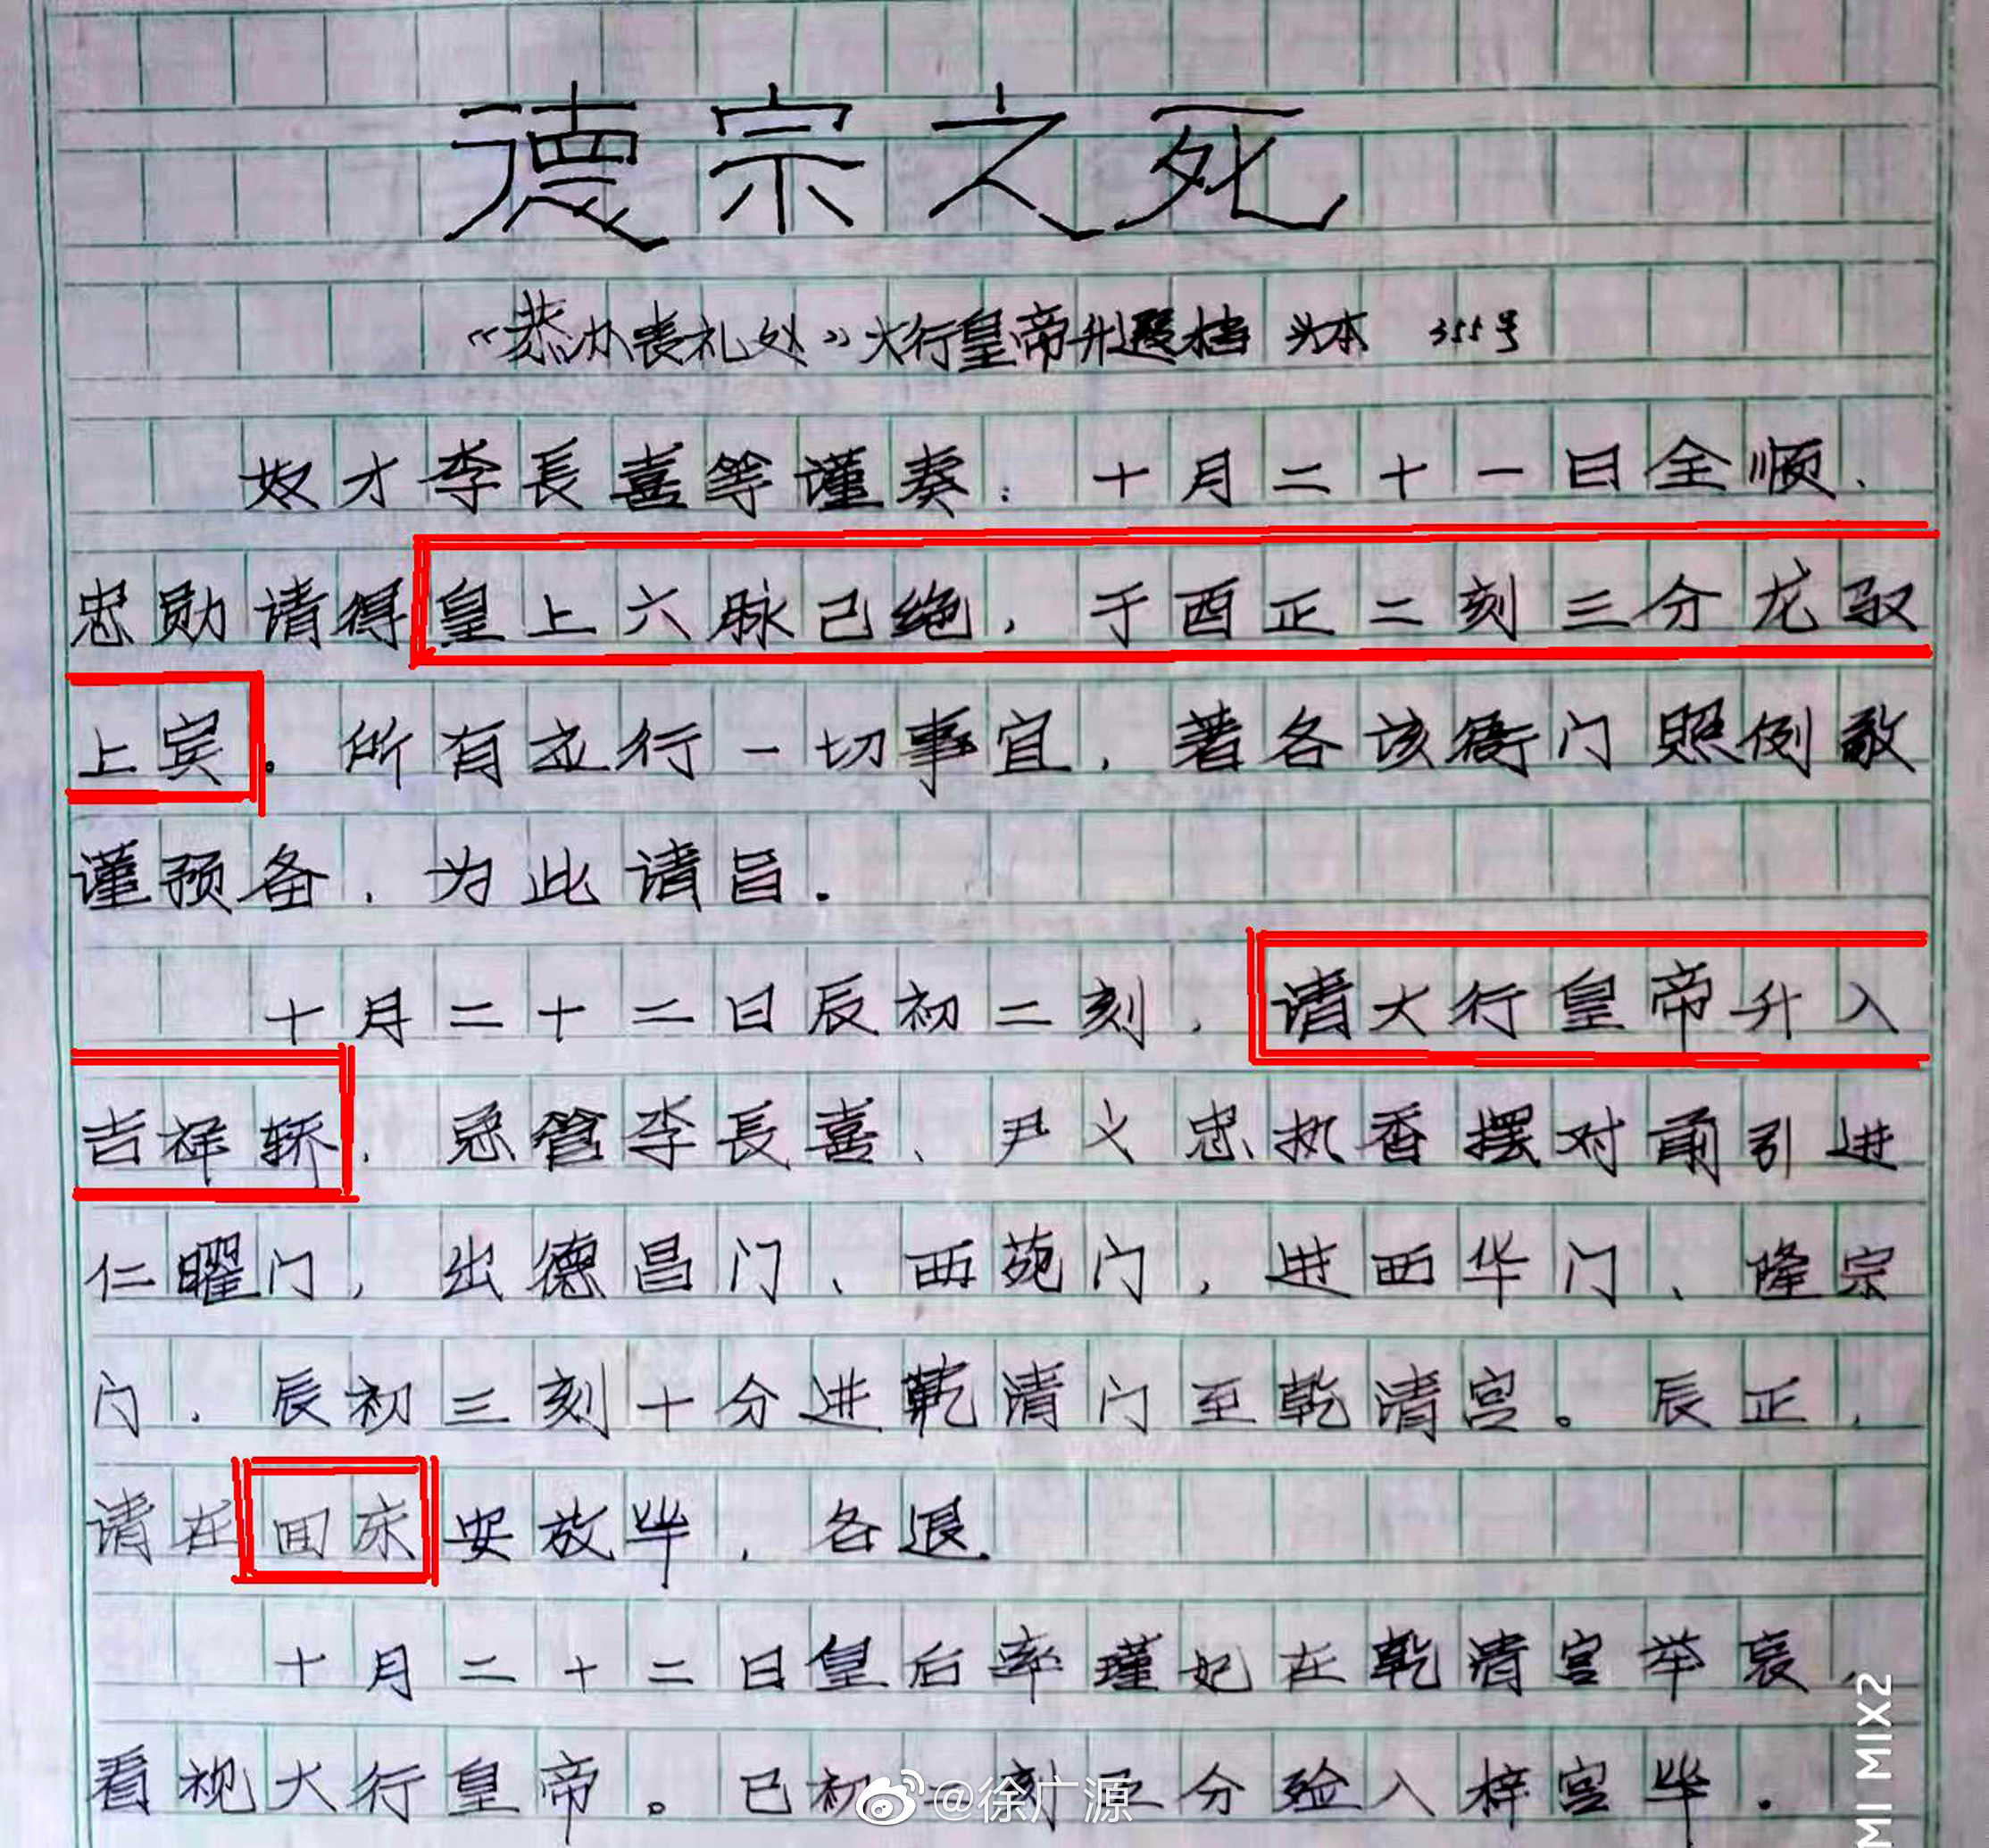 德宗之死
《恭办丧礼处》大行皇帝升遐档 头本 355号
奴才李長喜等谨奏：十月二十一日全顺、
忠勋请得皇上六脉已绝，于酉正二刻三分龙驭
上宾。所有应行一切事宜，著各该衙门照例敬
谨预备，为此请旨。
十月二十二日辰初二刻，请大行皇帝升入
吉祥轿，总管李長喜、尹义忠执香摆对前引进
仁曜门，出德昌门、西苑门，进西华门、隆宗
门，辰初三刻十分进乾清门至乾清宫。辰正，
请在面床安放毕，各退。
十月二十二日皇后率瑾妃在乾清宫举哀，
看视大行皇帝。巳初 刻 分殓入梓宫毕。
@徐广源
MI MIX2